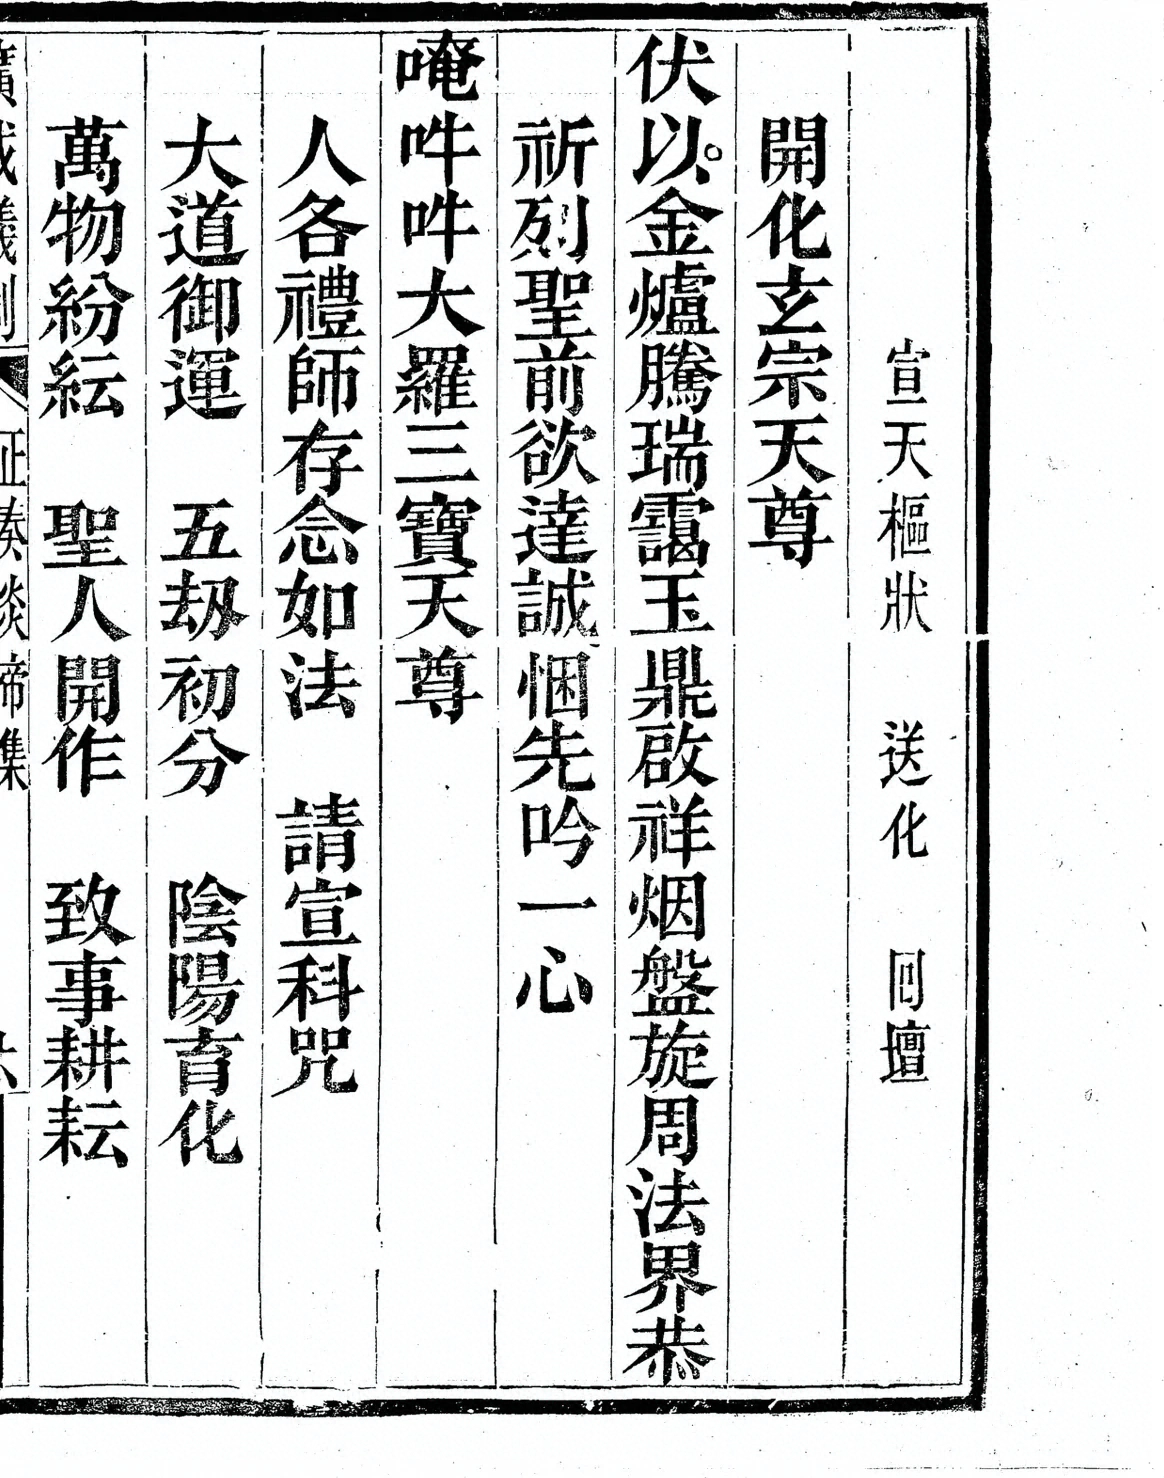 宣天樞狀　送化　同壇
開化玄宗天尊
伏以。金爐騰瑞靄玉鼎啟祥烟盤旋周法界恭
祈烈聖前欲達誠悃先吟一心
唵吽吽大羅三寶天尊
人各禮師存念如法　請宣科咒
大道御運　五刼初分　陰陽育化
萬物紛紜　聖人開作　致事耕耘